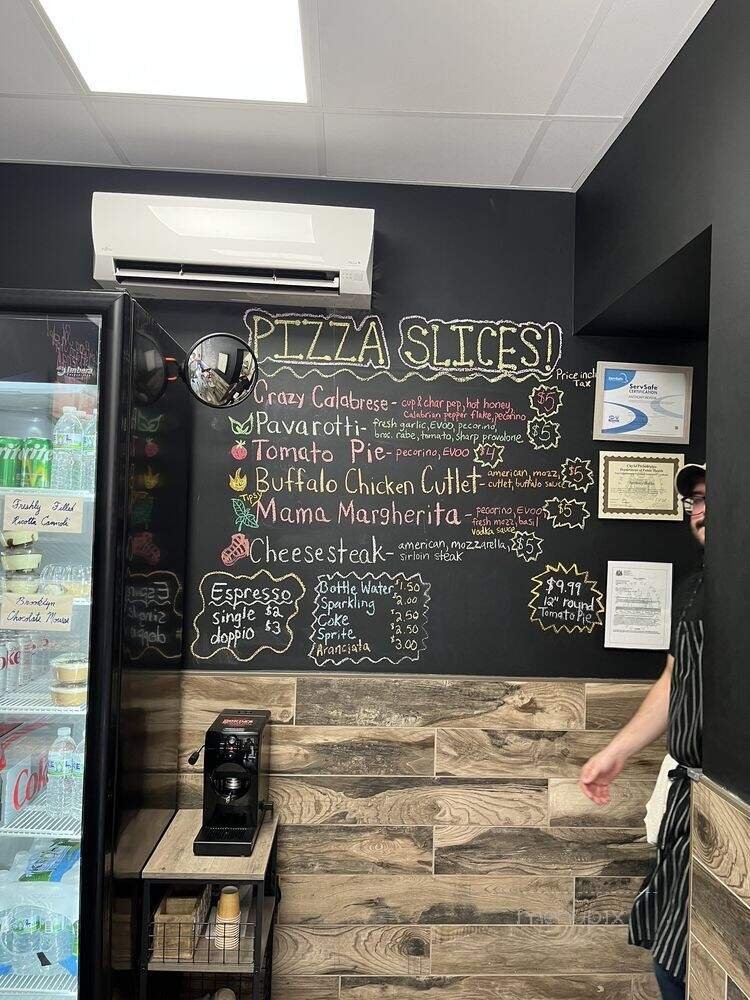 PIZZA SLICES!
Price incl
Tax
Crazy Calabrese - cup & char pep, hot honey,
Calabrian pepper flake, pecorino
$5
Pavarotti - fresh garlic, EVOO, pecorino,
broc. rabe, tomato, sharp provolone
$5
Tomato Pie - pecorino, EVOO $4
Buffalo Chicken Cutlet - american, mozz,
cutlet, buffalo sauce
$5
Tips
Mama Margherita - pecorino, EVOO
fresh mozz, basil
vodka sauce
$5
Cheesesteak - american, mozzarella,
sirloin steak
$5
Espresso
single $2
doppio $3
Bottle Water $1.50
Sparkling $2.00
Coke $2.50
Sprite $2.50
Aranciata $3.00
$9.99
12" round
Tomato Pie
ServSafe
CERTIFICATION
Freshly Filled
Ricotta Cannoli
Brooklyn
Chocolate Mousse